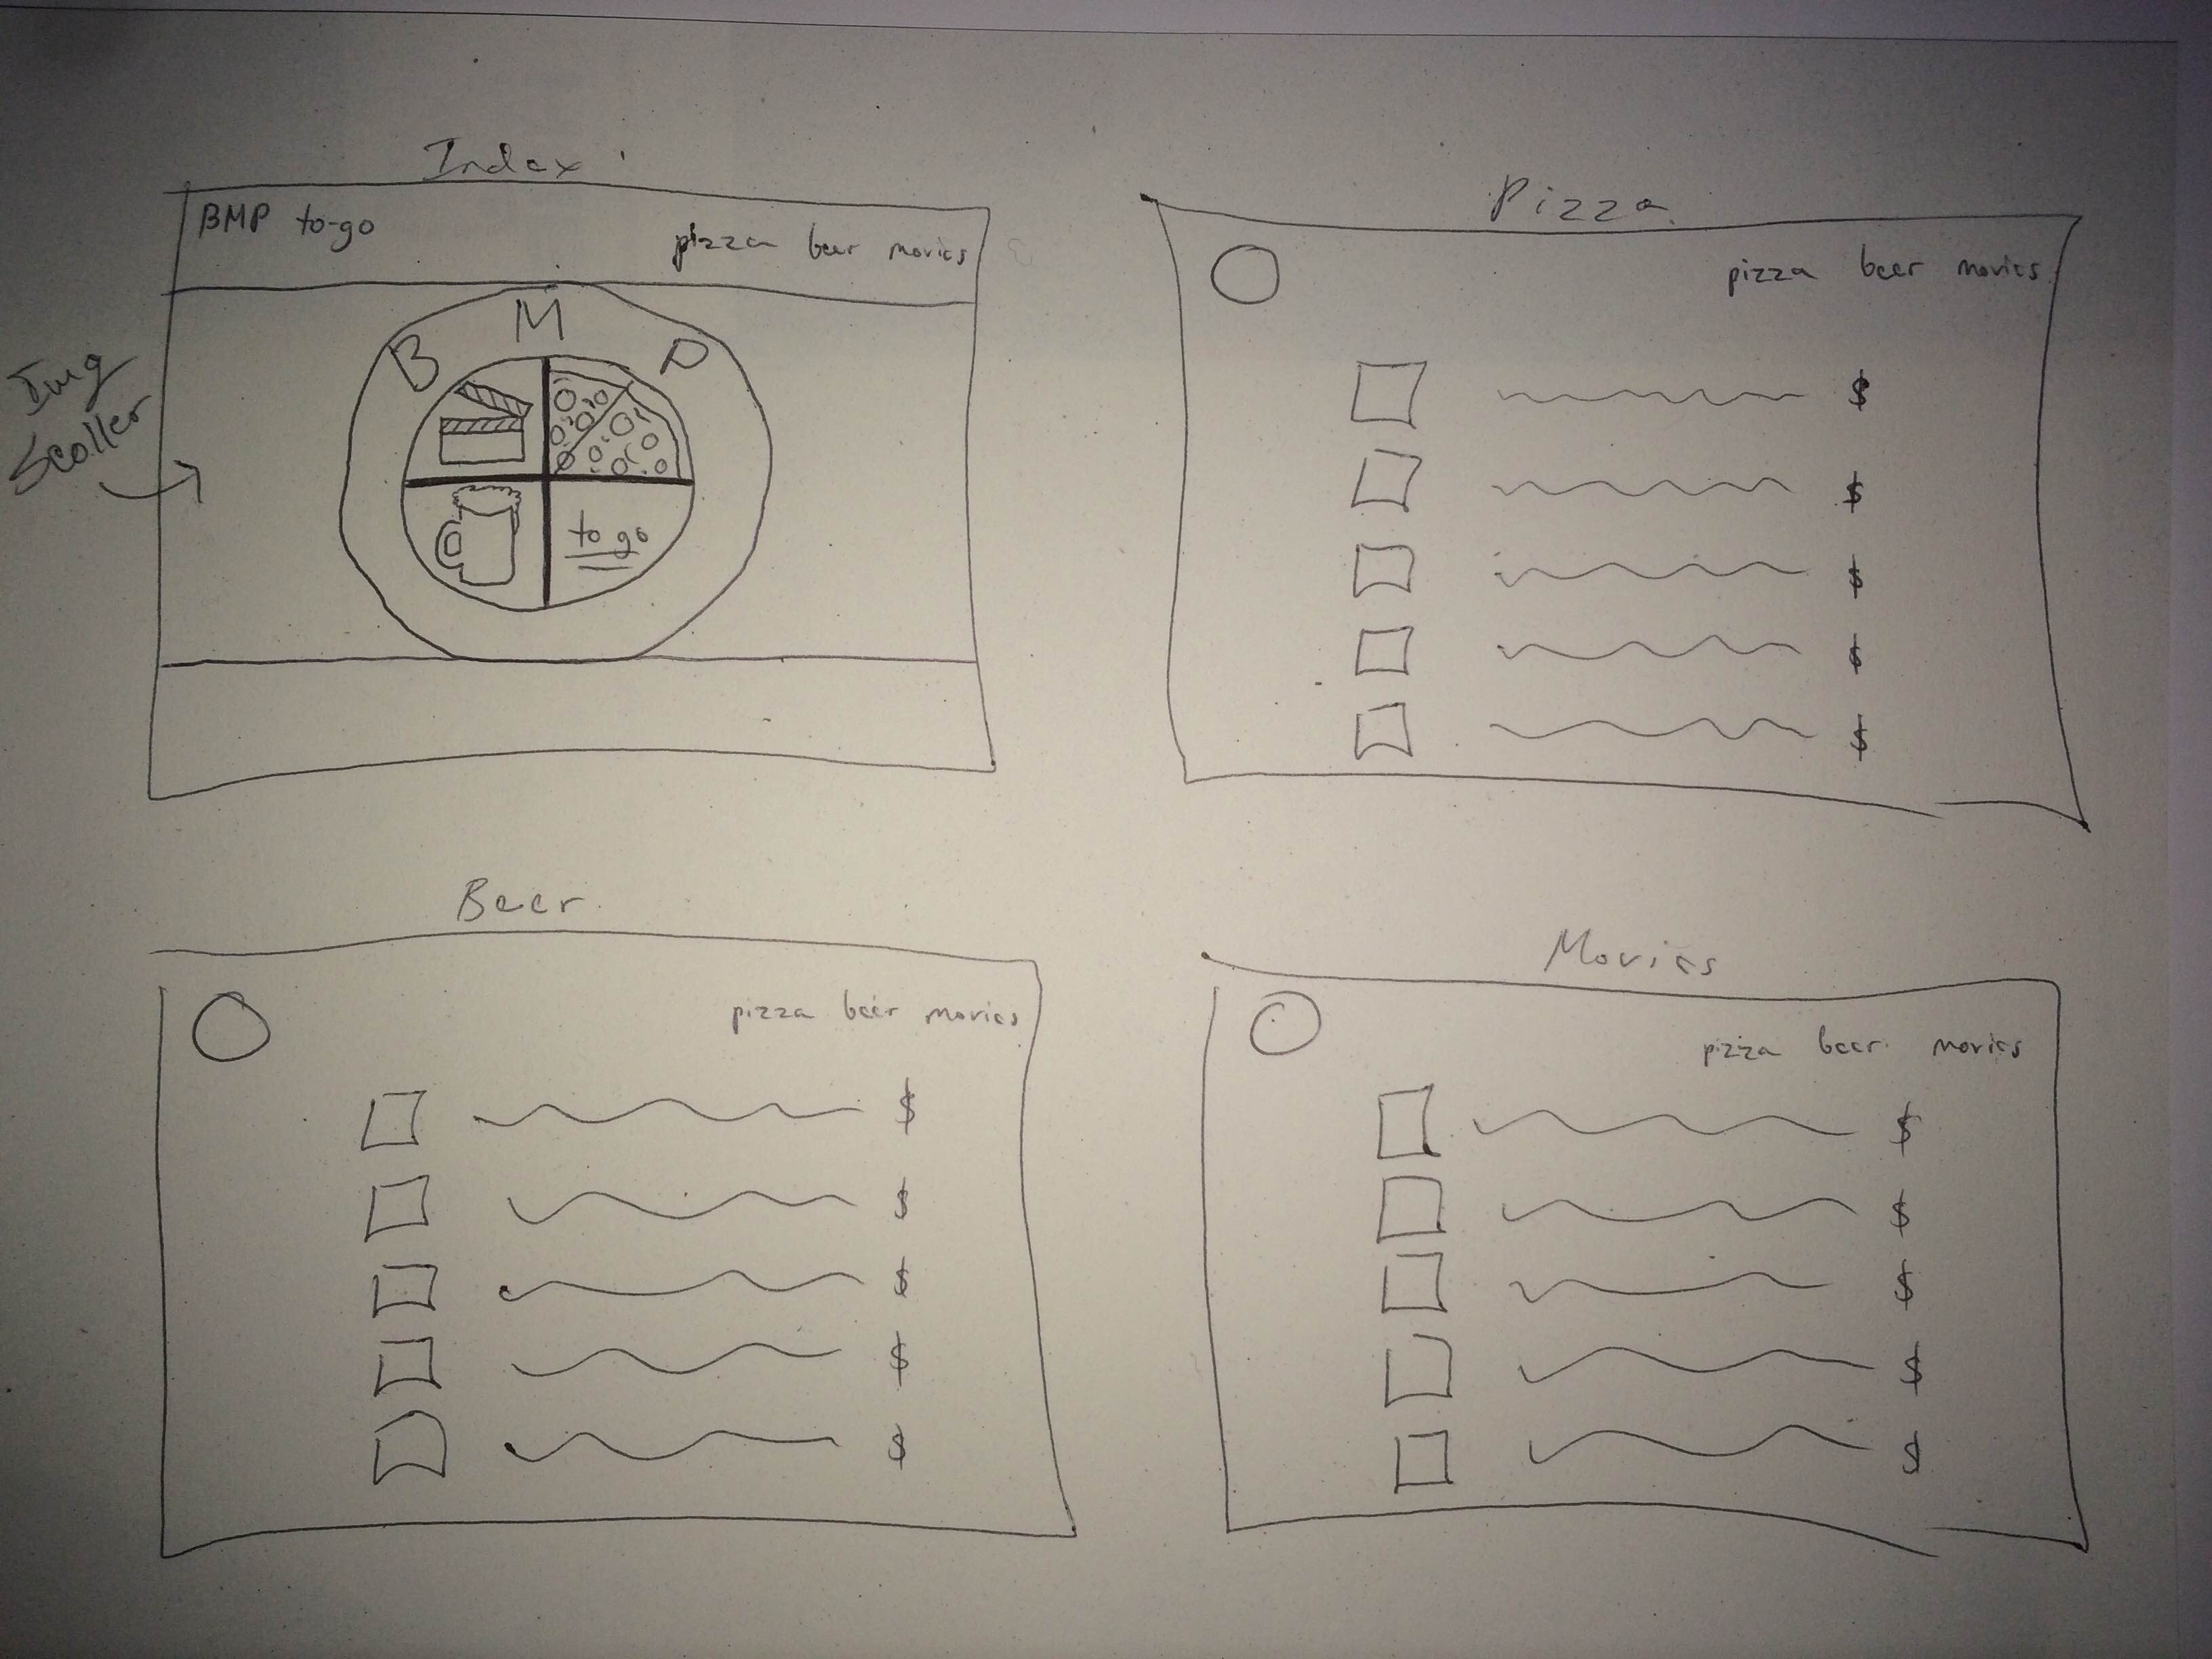 Index
BMP to-go
pizza beer movies
B M P
to go
Img
Scoller
Pizza
pizza beer movies
$
$
$
$
$
Beer
pizza beer movies
$
$
$
$
$
Movies
pizza beer movies
$
$
$
$
$